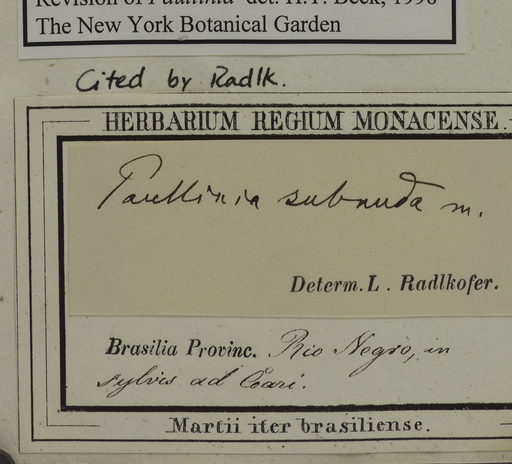 Revision of Paullinia det. H.T. Beck, 1998
The New York Botanical Garden
Cited by Radlk.
HERBARIUM REGIUM MONACENSE.
Paullinia subnuda m.
Determ. L. Radlkofer.
Brasilia Provinc. Rio Negro, in
sylvis ad Coari.
Martii iter brasiliense.